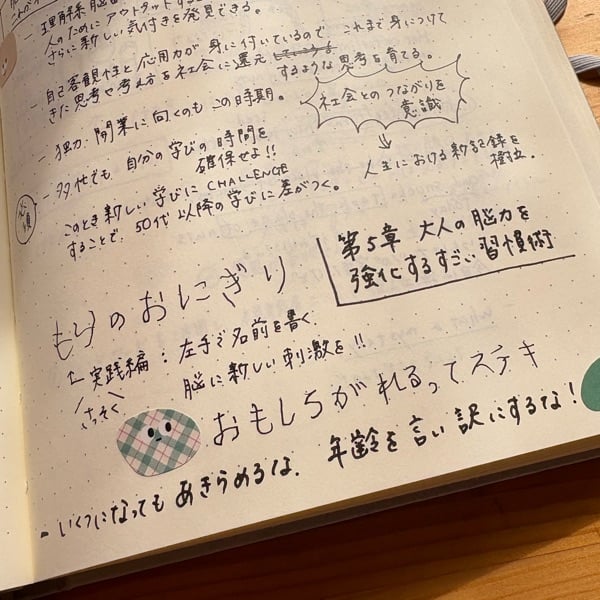 理解系脳番
人のためにアウトプットする
さらに新しい気付きを発見できる。
- 自己客観性と応用力が身に付いているので これまで身につけて
きた思考や考え方を社会に還元している するような思考を育てる。
- 独立・開業に向くのもこの時期。
社会とのつながりを
意識
- 多忙でも、自分の学びの時間を
確保せよ!!
人生における新記録を
樹立。
このとき新しい学びにCHALLENGE
することで、50代以降の学びに差がつく。
第5章 大人の脳力を
強化するすごい習慣術
のおにぎり
↑実践編:左手で名前を書く
さっそく
脳に新しい刺激を!!
おもしろがれるってステキ
- いくつになってもあきらめるな、年齢を言い訳にするな!